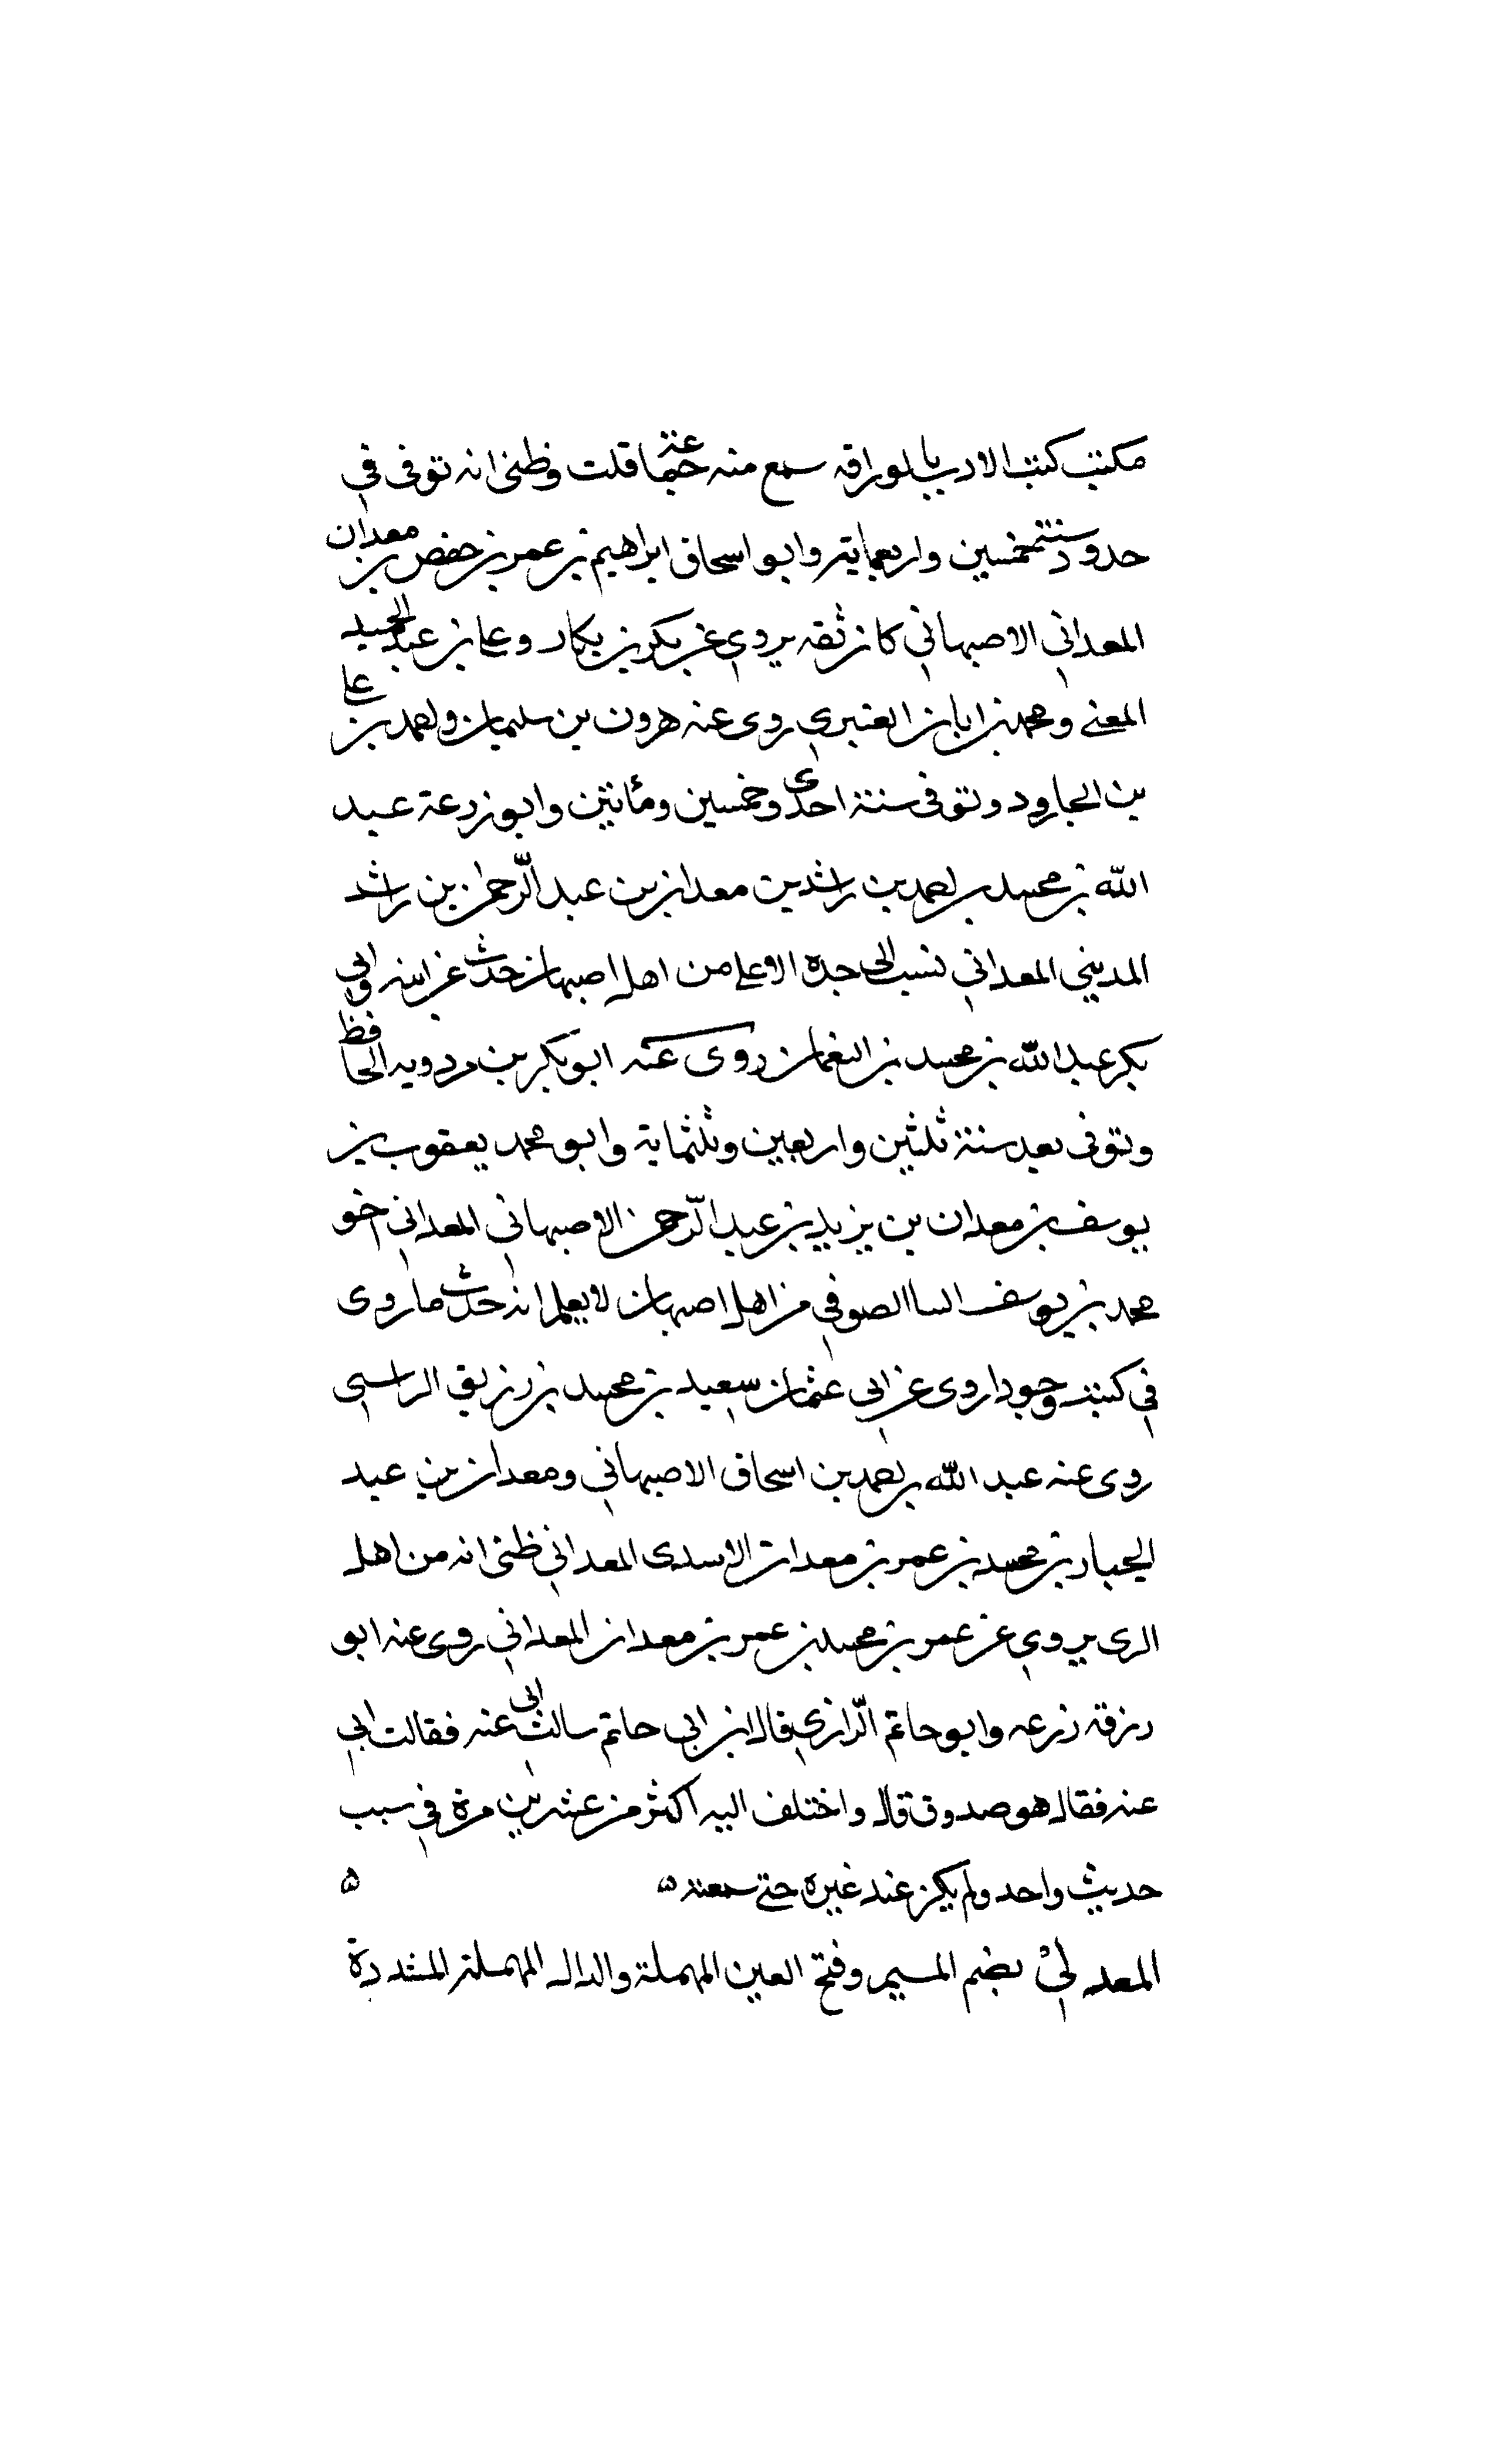 مكتب كتب الادب بالوراقه سمع منه جماعة قلت وظنى انه توفى في
حدود سنة خمسين واربعماية وابو اسحاق ابراهيم بن عمر بن حفص بن معدان
المعداني الاصبهاني كان ثقه يروي عن بكر بن بكار وعلى بن عبد الحميد
المعنى ومحمد بن ابان العنبري روى عنه هرون بن سليمان واحمد بن على
بن الجارود وتوفى سنة احدى وخمسين ومائتين وابو زرعة عبيد
الله بن محمد بن احمد بن راشد بن معدان بن عبد الرحمن بن راشد
المديني المعداني نسب الى جده الاعلى من اهل اصبهان حدث عن ابيه وابي
بكر عبد الله بن محمد بن النعمان روى عنه ابو بكر بن مردويه الحافظ
وتوفى بعد سنة ثلثين واربعين وثلثماية وابو محمد يعقوب بن
يوسف بن معدان بن يزيد بن عبد الرحمن الاصبهاني المعداني اخو
محمد بن يوسف البنا الصوفي من اهل اصبهان لا يعلم انه حدث ما روى
في كتبه وجودا روى عن ابي عثمان سعيد بن محمد بن زريق الراسبى
روى عنه عبد الله بن احمد بن اسحاق الاصبهاني ومعدان بن عبد
الجبار بن محمد بن عمر بن معدان الاسدى المعداني ظنى انه من اهل
الرى يروي عن عمر بن محمد بن عمر بن معدان المعداني روى عنه ابو
رزقه زرعه وابو حاتم الرازي قال ابن ابى حاتم سالت ابى عنه فقالت ابي
عنه فقال هو صدوق قال واختلف اليه اكثر من عشرين مرة في سبب
حديث واحد ولم يكن عند غيره حتى سمعته ه ه
المعدلي بضم الميم وفتح العين المهملة والدال المهملة المشددة